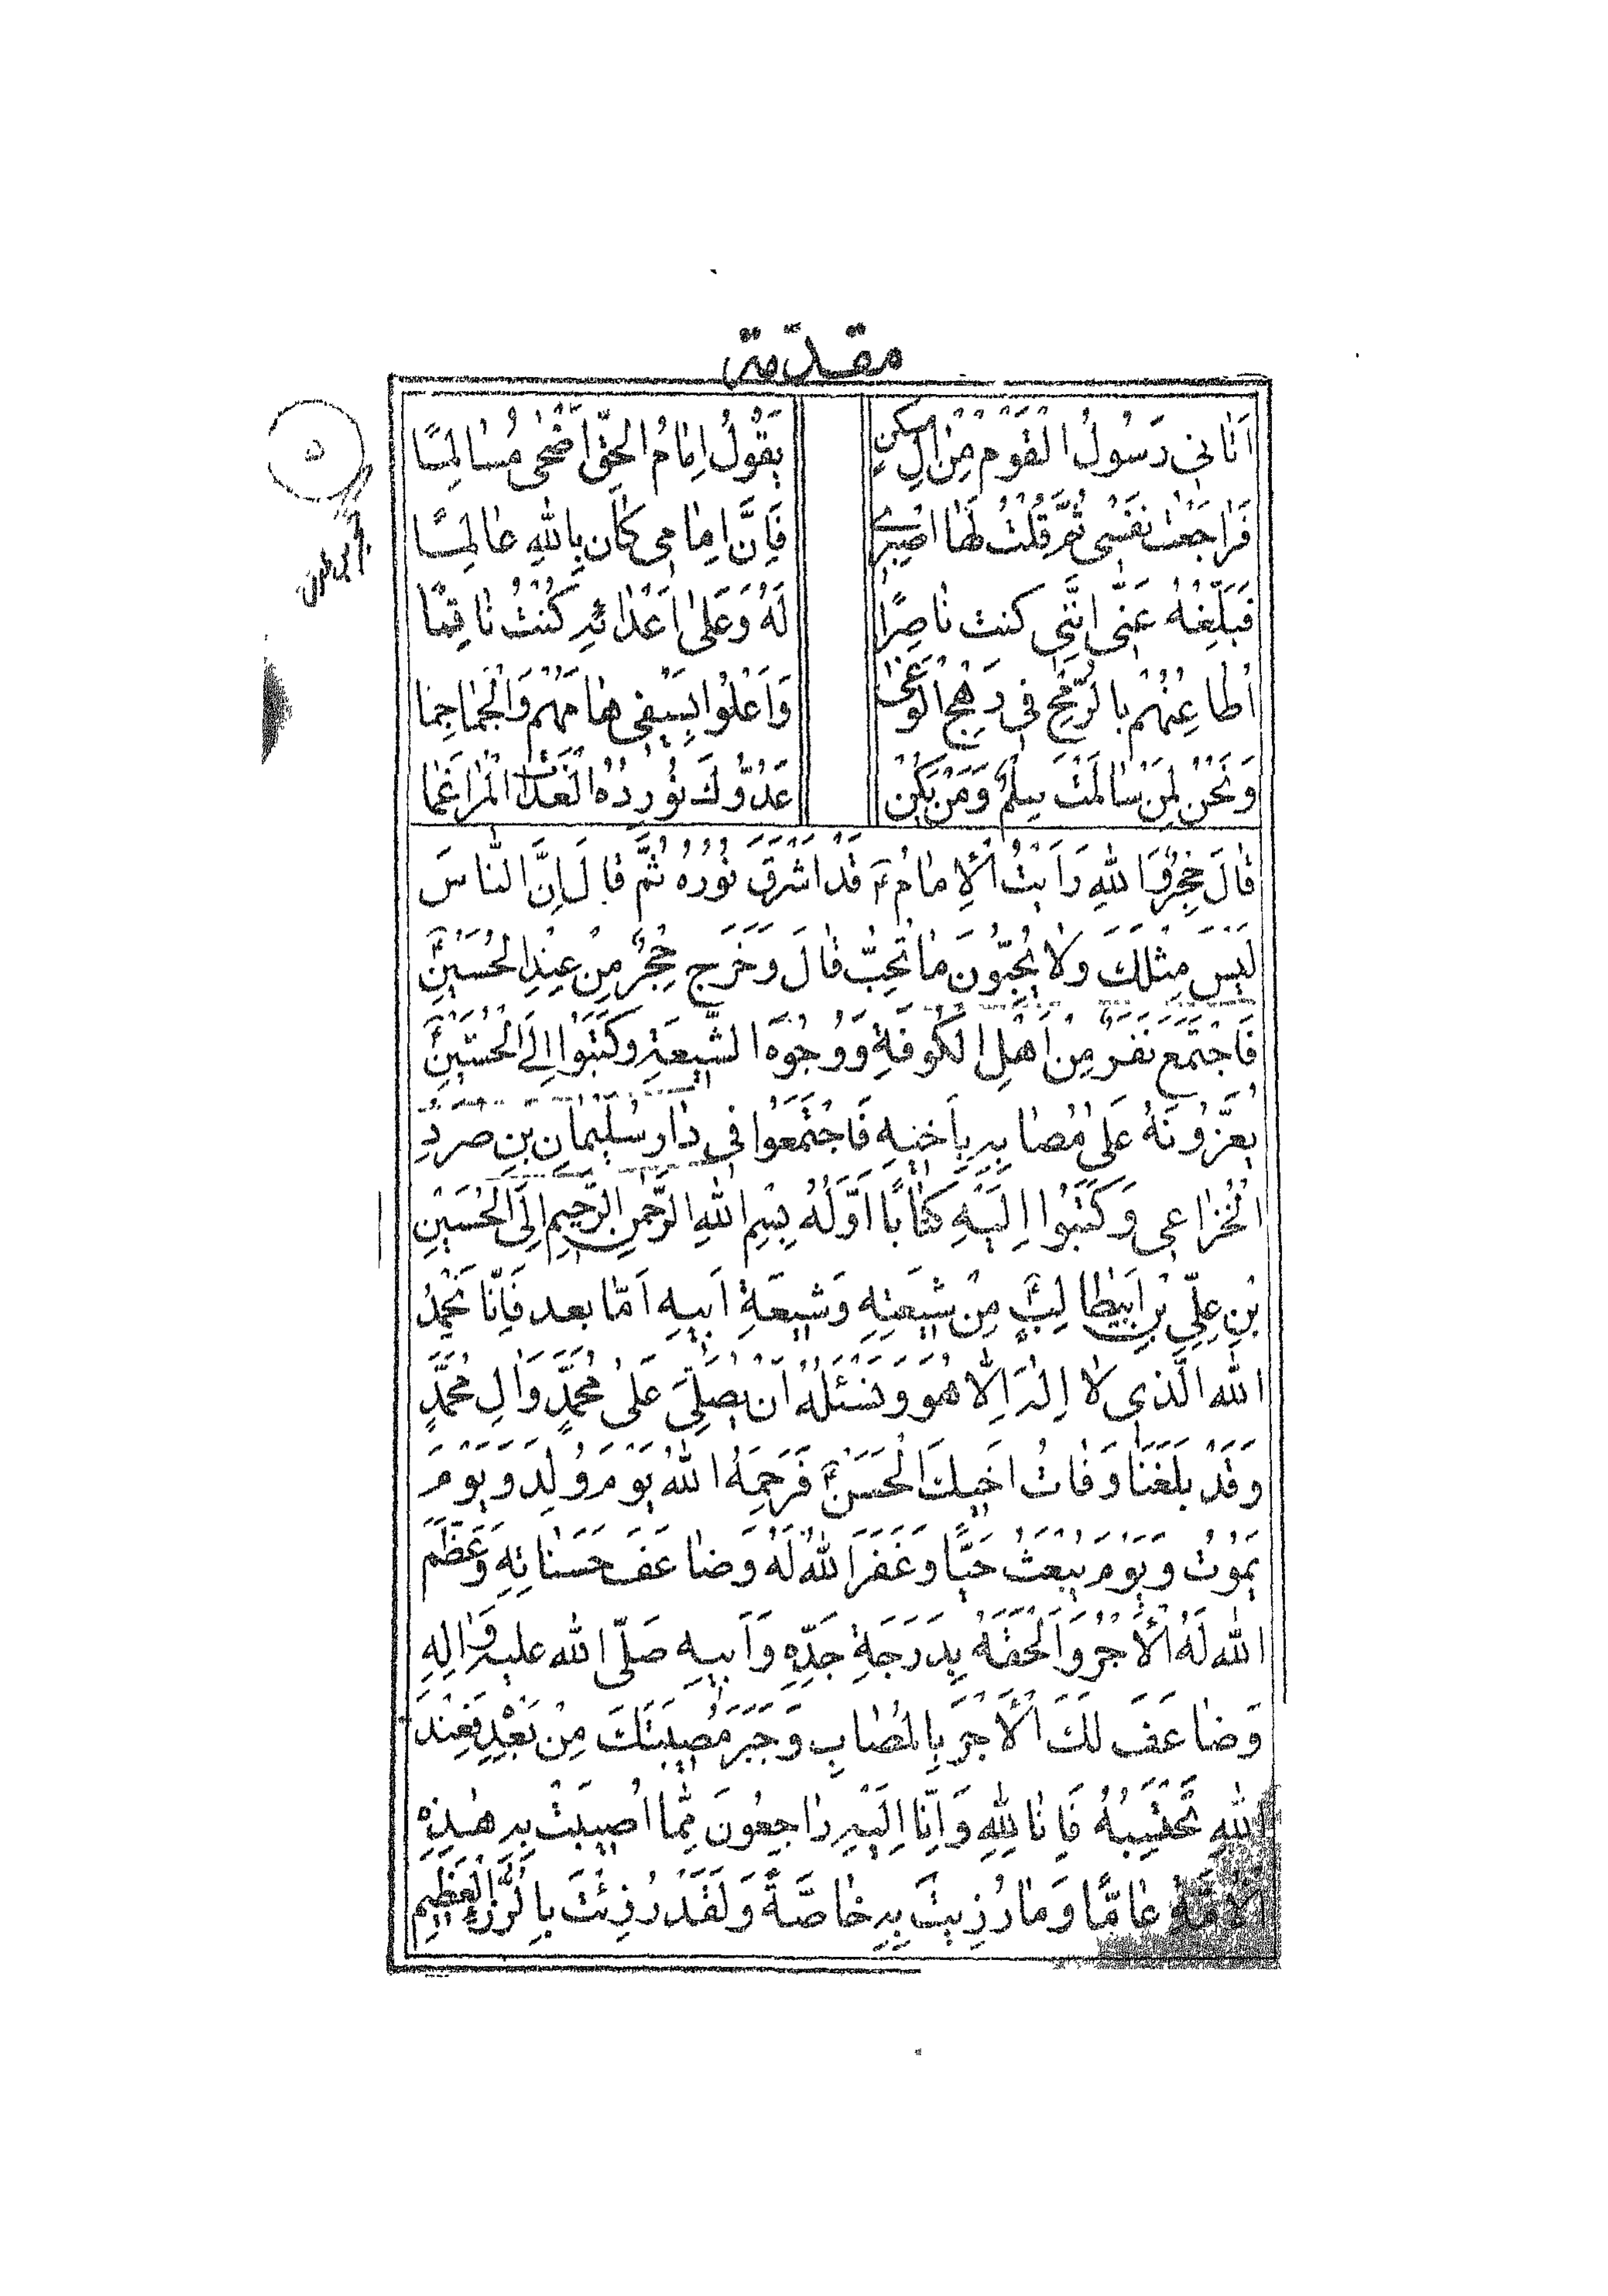 مقدّمة
اَتٰاني رَسُولُ القَوْمِ مِنْ اٰلِ مَسْكَنٍ يَقُولُ اِمٰامُ الحَقِّ اَضْحٰى مُسٰالِمًا
فَرٰاجَعْتُ نَفْسي ثُمَّ قُلْتُ لَهٰا اصْبِرِي فَاِنَّ اِمٰامي كٰانَ بِاللهِ عٰالِمًا
فَبَلِّغْهُ عَنّي اِنَّني كنت نٰاصِرًا لَهُ وَعَلىٰ اَعْدٰائِهِ كُنْتُ نٰاقِمًا
اُطٰاعِنُهُم بالرُّمْحِ في رَهِجِ الْوَغىٰ وَاَعْلُوا بِسَيْفي هٰامَهُمْ وَالْجَمٰاجِمٰا
وَنَحْنُ لِمَنْ سٰالَمْتَ سِلْمٌ وَمَنْ يَكُنْ عَدُوَّكَ نُورِدْهُ الْعَذٰابَ الْمُرٰاغَمٰا
قٰالَ حُجْرٌ وَاللهِ رَاَيْتُ الْاِمٰامَ قَدْ اَشْرَقَ نُورُهُ ثُمَّ قٰالَ اِنَّ النّاسَ
لَيْسَ مِثْلَكَ وَلٰا يُحِبُّونَ مٰا تُحِبُّ قٰالَ وَخَرَجَ حُجْرٌ مِنْ عِنْدِ الْحُسَيْنِ
فَاجْتَمَعَ نَفَرٌ مِنْ اَهْلِ الْكُوفَةِ وَوُجُوهِ الشّيعَةِ وَكَتَبُوا اِلَى الْحُسَيْنِ
يُعَزُّونَهُ عَلىٰ مُصٰابِهِ بِاَخيهِ فَاجْتَمَعُوا في دٰارِ سُلَيْمٰانِ بنِ صُرَدِ
الْخُزٰاعي وَكَتَبُوا اِلَيْهِ كِتٰابًا اَوَّلُهُ بِسْمِ اللهِ الرَّحْمٰنِ الرَّحيمِ اِلَى الْحُسَيْنِ
بْنِ عَلِيِّ بْنِ اَبيطٰالِبٍ مِنْ شيعَتِهِ وَشيعَةِ اَبيهِ اَمّا بعد فَاِنّا نَحْمَدُ
الله الَّذي لٰا اِلٰهَ اِلّا هُوَ وَنَسْئَلُهُ اَنْ يُصَلِّيَ عَلىٰ مُحَمَّدٍ وَاٰلِ مُحَمَّدٍ
وَقَدْ بَلَغَنٰا وَفٰاتُ اَخيكَ الْحَسَنِ فَرَحِمَهُ اللهُ يَوْمَ وُلِدَ وَيَوْمَ
يَمُوتُ وَيَوْمَ يُبْعَثُ حَيًّا وَغَفَرَ اللهُ لَهُ وَضٰاعَفَ حَسَنٰاتِهِ وَعَظَّمَ
اللهُ لَهُ الْاَجْرَ وَالْحَقَهُ بِدَرَجَةِ جَدِّهِ وَاَبيهِ صَلّى الله عليه وَاٰلِهِ
وَضٰاعَفَ لَكَ الْاَجْرَ بِالْمُصٰابِ وَجَبَرَ مُصيبَتَكَ مِنْ بَعْدِهِ فَعِنْدَ
اللهِ تَحْتَسِبُهُ فَاِنّا لِلهِ وَاِنّا اِلَيْهِ رٰاجِعُونَ مِمّا اُصيبَتْ بِهِ هٰذِهِ
الْاُمَّةُ عٰامًّا وَمٰا رُزيتَ بِهِ خٰاصَّةً وَلَقَدْ رُزِئْتَ بِالرُّزْءِ الْعَظيمِ